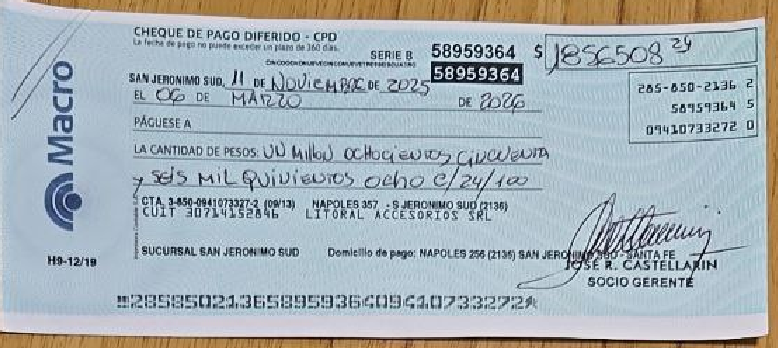 CHEQUE DE PAGO DIFERIDO - CPD
La fecha de pago no puede exceder un plazo de 360 días.
SERIE B 58959364 $ 1856508 24
58959364
SAN JERONIMO SUD, 11 DE NOVIEMBRE DE 2025
EL 06 DE MARZO DE 2026
285-850-2136 2
58959364 5
09410733272 0
PÁGUESE A
LA CANTIDAD DE PESOS: UN MILLON OCHOCIENTOS CINCUENTA
y SEIS MIL QUINIENTOS OCHO C/24/100
CTA. 3-850-0941073327-2 (09/13) NAPOLES 357 - S JERONIMO SUD (2136)
CUIT 30714152846 LITORAL ACCESORIOS SRL
SUCURSAL SAN JERONIMO SUD Domicilio de pago: NAPOLES 256 (2136) SAN JERONIMO SUD - SANTA FE
JOSE R. CASTELLARIN
SOCIO GERENTE
Macro
H9-12/19
28585021365895936409410733272